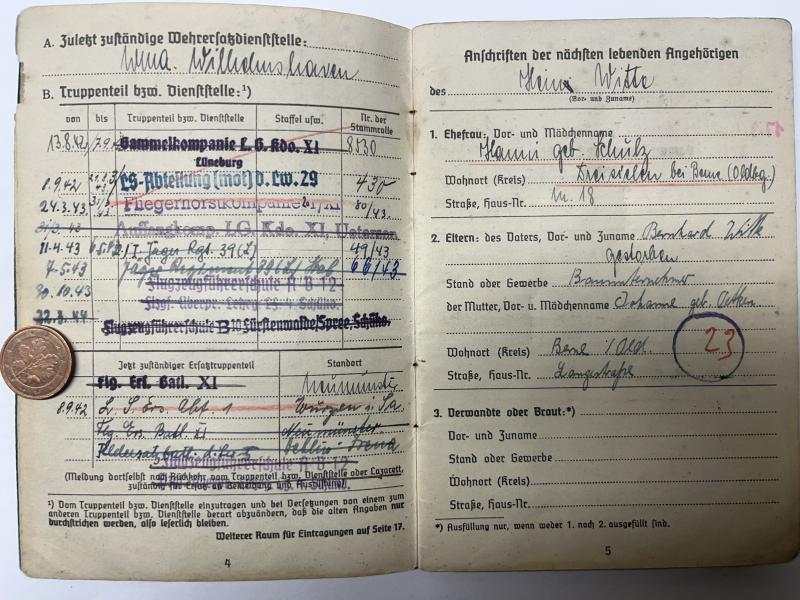 A. Zuletzt zuständige Wehrersatzdienststelle:
Wma. Wilhelmshaven
B. Truppenteil bzw. Dienststelle:¹)
von bis Truppenteil bzw. Dienststelle Staffel usw. Nr. der Stammrolle
13.8.42 7.9. Sammelkompanie L. G. Kdo. XI 8530
Lüneburg
8.9.42 LS-Abteilung (mot) d. Lw. 29 430
24.3.43 Fliegerhorstkompanie XI 80/43
Auffangkomp. L.G. Kdo. XI, Uetersen
11.4.43 I. Jäger Rgt. 39 (L) 49/43
7.5.43 Jäger Regiment (L) 66/43
30.10.43 Flugzeugführerschule A B 12
22.3.44 Flugzeugführerschule B 10 Fürstenwalde/Spree, Schülko.
Jetzt zuständiger Ersatztruppenteil Standort
Flg. Ers. Batl. XI Neumünster
8.9.42 L. S. Ers. Abt. 1 Wurzen i. Sa.
Flg. Ers. Batl. XI Neumünster
Flugzeugführerschule A B 12
(Meldung dortselbst nach Rückkehr vom Truppenteil bzw. Dienststelle oder Lazarett,
zuständig für Ersatz an Bekleidung und Ausrüstung)
¹) Vom Truppenteil bzw. Dienststelle einzutragen und bei Versetzungen von einem zum
anderen Truppenteil bzw. Dienststelle derart abzuändern, daß die alten Angaben nur
durchstrichen werden, also leserlich bleiben.
Weiterer Raum für Eintragungen auf Seite 17.
4
Anschriften der nächsten lebenden Angehörigen
des Witte
(Vor- und Zuname)
1. Ehefrau: Vor- und Mädchenname
Hanni geb. Schulz
Wohnort (Kreis) Dreisielen bei Berne (Oldbg.)
Straße, Haus-Nr. Nr. 18
2. Eltern: des Vaters, Vor- und Zuname Bernhard Witte
gestorben
Stand oder Gewerbe Bauunternehmer
der Mutter, Vor- u. Mädchenname Johanne geb.
Wohnort (Kreis) Berne i/Old.
23
Straße, Haus-Nr. Langestraße
3. Verwandte oder Braut:*)
Vor- und Zuname
Stand oder Gewerbe
Wohnort (Kreis)
Straße, Haus-Nr.
*) Ausfüllung nur, wenn weder 1. noch 2. ausgefüllt sind.
5